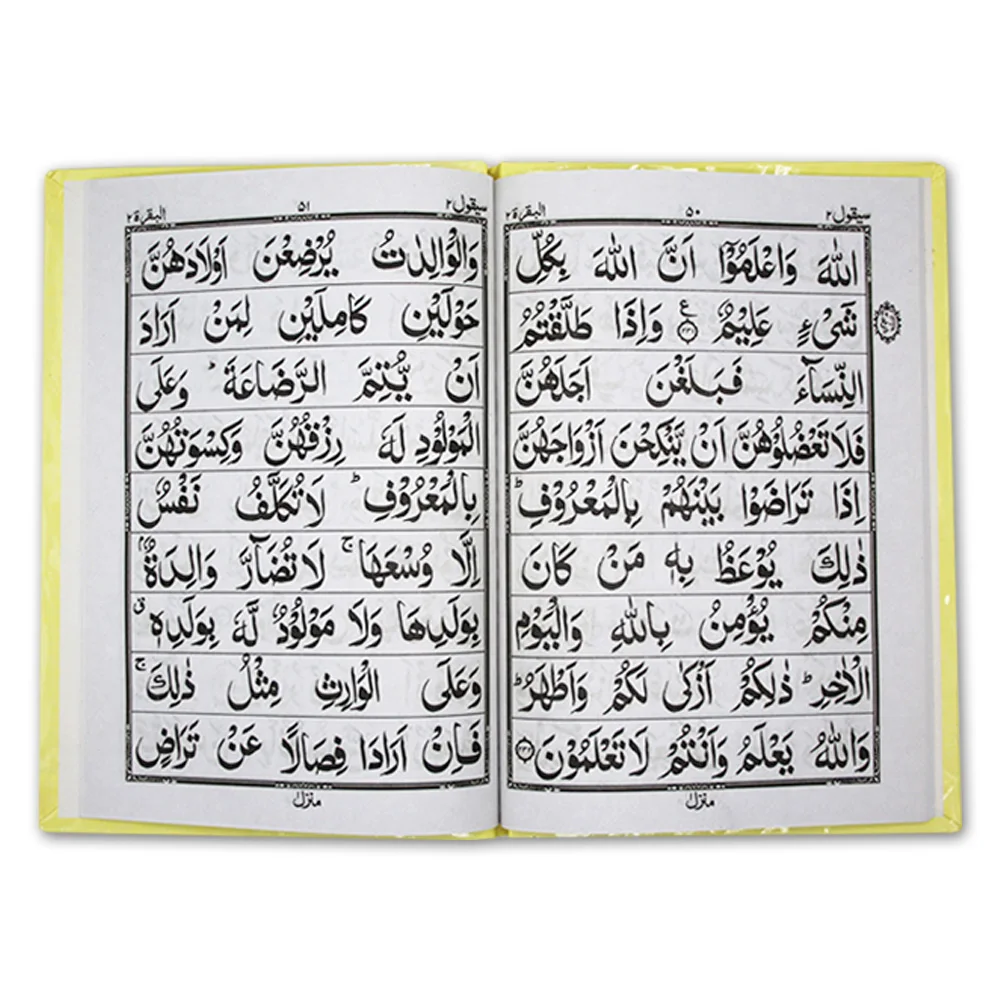 سيقول ٢ ٥٠ البقرة ٢
اللّٰهَ وَاعْلَمُوْٓا اَنَّ اللّٰهَ بِكُلِّ
شَىْءٍ عَلِيْمٌ ۝٢٣١ ع وَاِذَا طَلَّقْتُمُ
النِّسَآءَ فَبَلَغْنَ اَجَلَهُنَّ
فَلَا تَعْضُلُوْهُنَّ اَنْ يَّنْكِحْنَ اَزْوَاجَهُنَّ
اِذَا تَرَاضَوْا بَيْنَهُمْ بِالْمَعْرُوْفِ ؕ
ذٰلِكَ يُوْعَظُ بِهٖ مَنْ كَانَ
مِنْكُمْ يُؤْمِنُ بِاللّٰهِ وَالْيَوْمِ
الْاٰخِرِ ؕ ذٰلِكُمْ اَزْكٰى لَكُمْ وَاَطْهَرُ ؕ
وَاللّٰهُ يَعْلَمُ وَاَنْتُمْ لَا تَعْلَمُوْنَ ۝٢٣٢
منزل ١
سيقول ٢ ٥١ البقرة ٢
وَالْوَالِدٰتُ يُرْضِعْنَ اَوْلَادَهُنَّ
حَوْلَيْنِ كَامِلَيْنِ لِمَنْ اَرَادَ
اَنْ يُّتِمَّ الرَّضَاعَةَ ؕ وَعَلَى
الْمَوْلُوْدِ لَهٗ رِزْقُهُنَّ وَكِسْوَتُهُنَّ
بِالْمَعْرُوْفِ ؕ لَا تُكَلَّفُ نَفْسٌ
اِلَّا وُسْعَهَا ۚ لَا تُضَآرَّ وَالِدَةٌۢ
بِوَلَدِهَا وَلَا مَوْلُوْدٌ لَّهٗ بِوَلَدِهٖ ۗ
وَعَلَى الْوَارِثِ مِثْلُ ذٰلِكَ ۚ
فَاِنْ اَرَادَا فِصَالًا عَنْ تَرَاضٍ
منزل ١